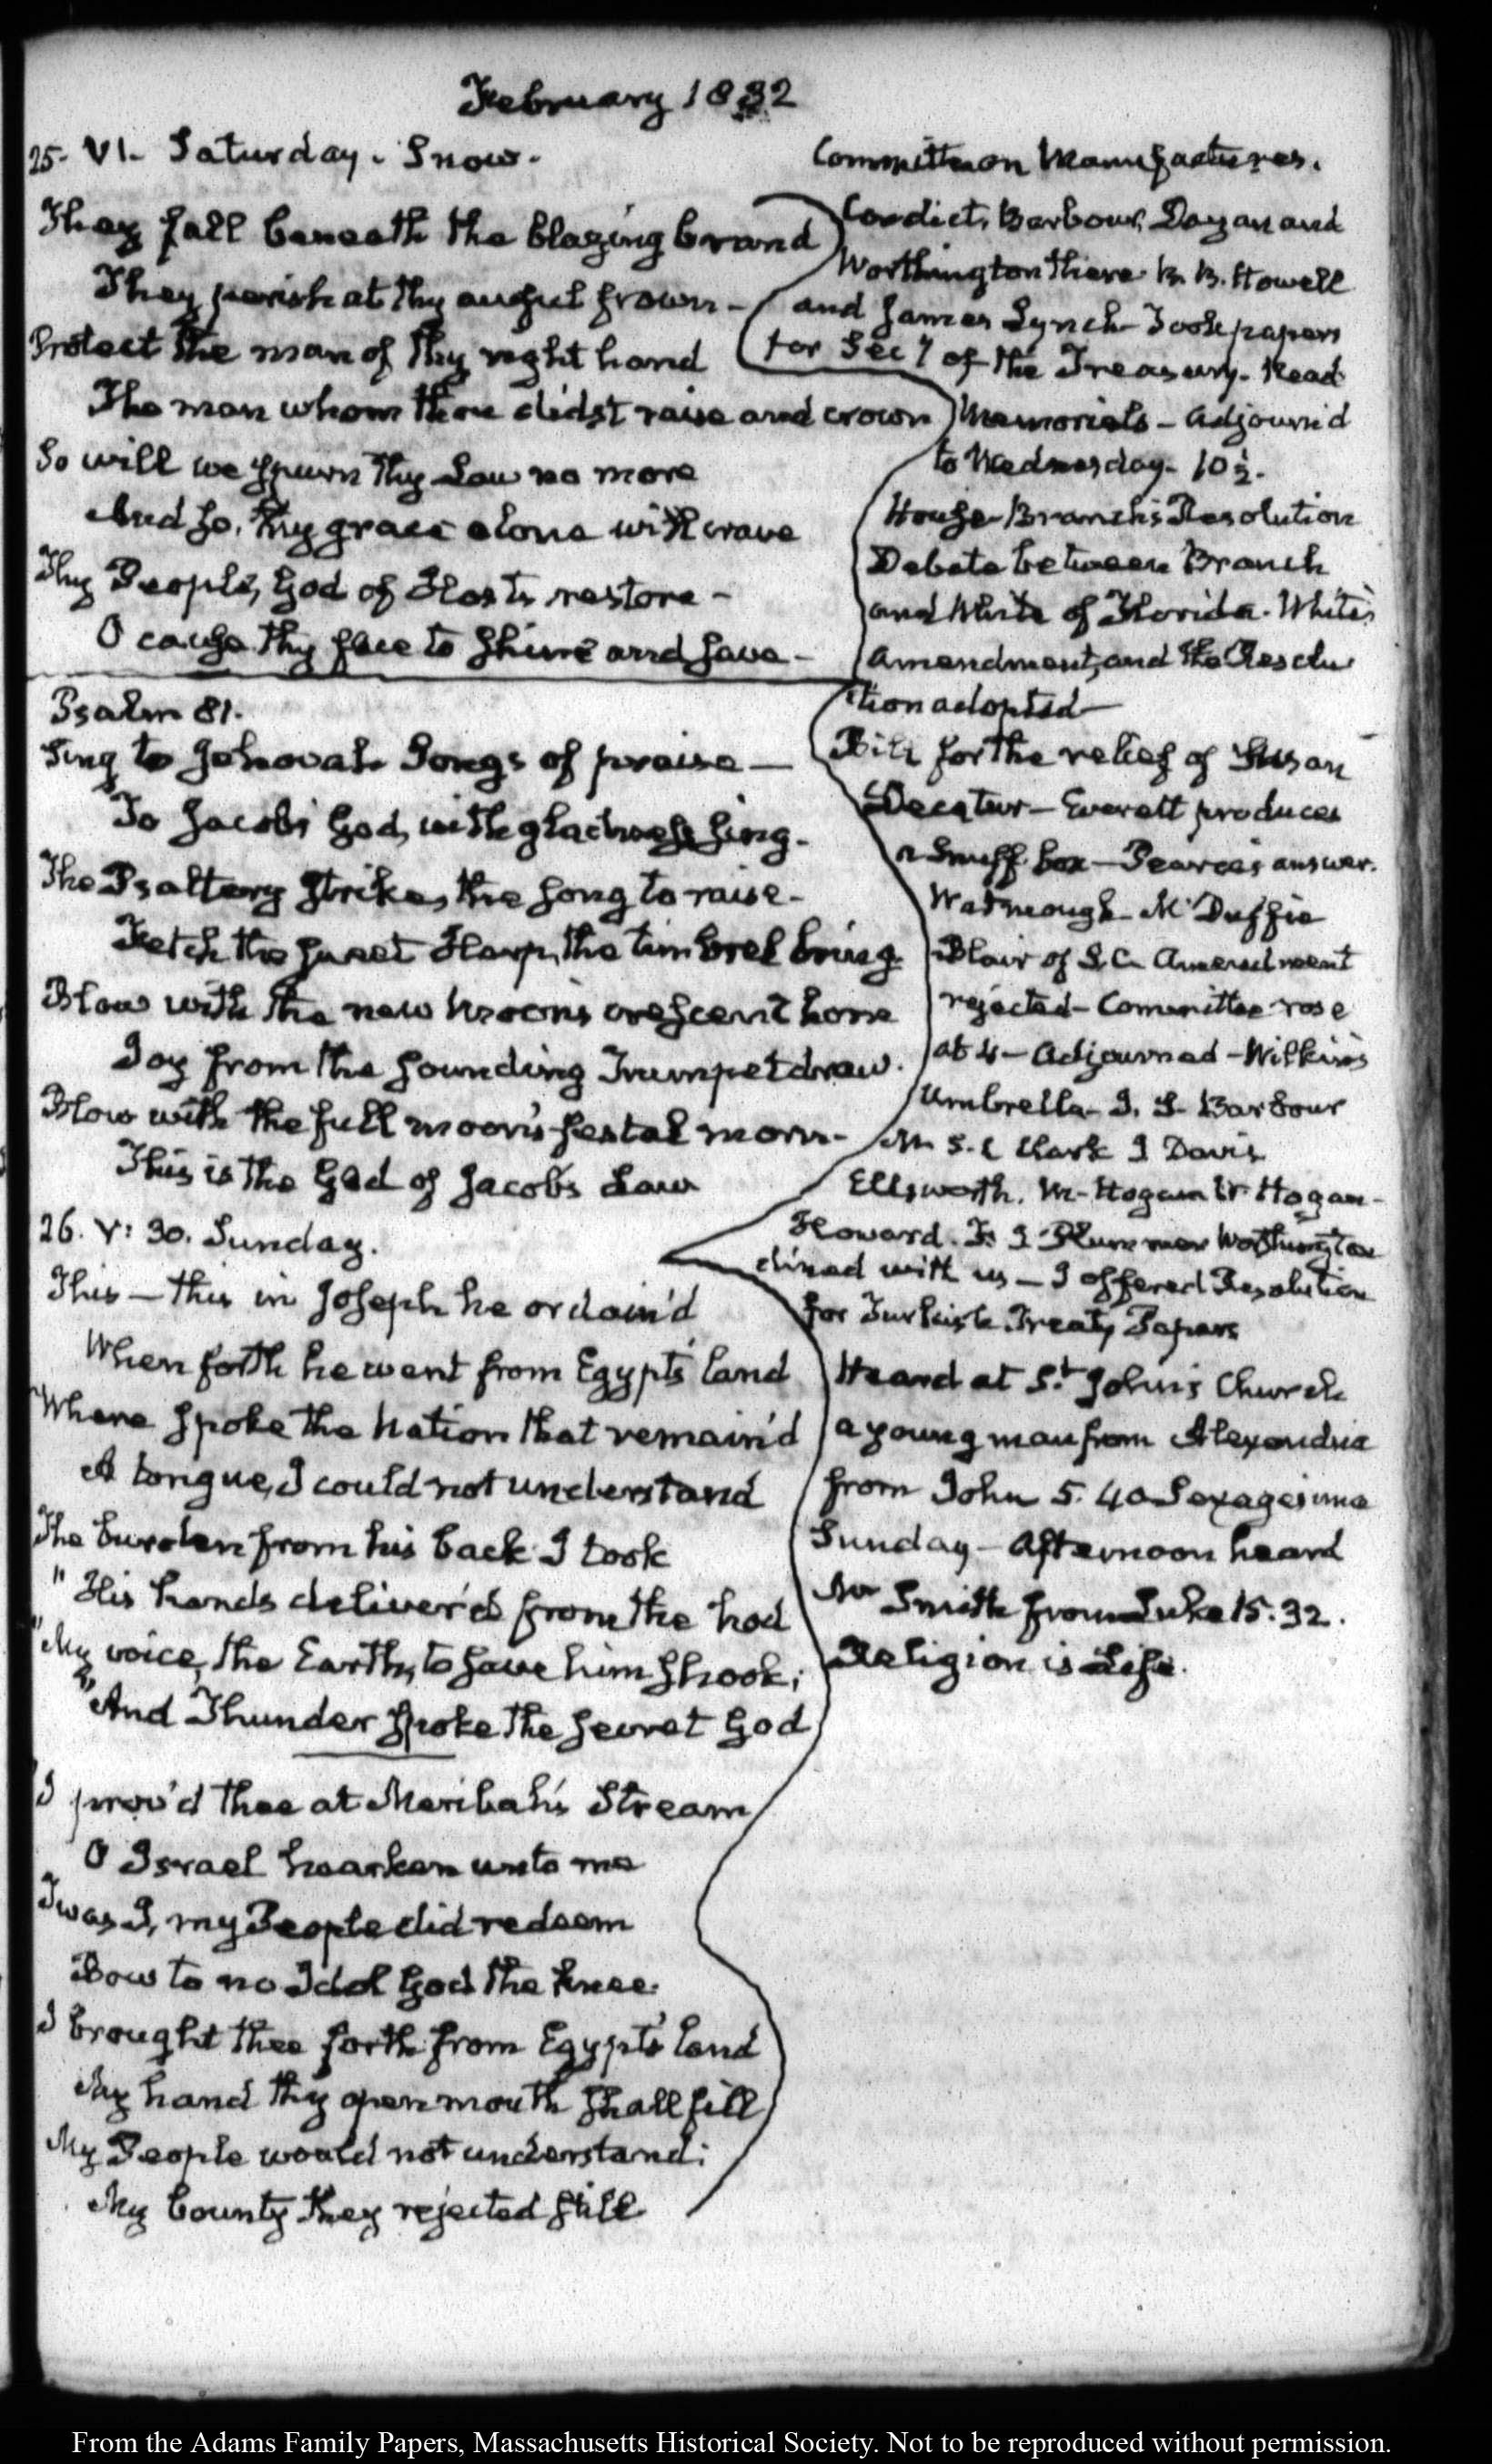 February 1832
25. VI. Saturday. Snow.
They fall beneath the blazing brand
They perish at thy awful frown —
Protect the man of thy right hand
The man whom thou didst raise and crown
So will we spurn thy Law no more
And so, thy grace alone will crave
Thy People, God of Hosts restore —
O cause thy face to shine and save —
Psalm 81.
Sing to Jehovah Songs of praise —
To Jacob's God, with gladness sing.
The Psaltery strike, the song to raise —
Fetch the sweet Harp, the timbrel bring
Blow with the new moon's crescent horn
Joy from the sounding Trumpet draw.
Blow with the full moon's festal morn —
This is the God of Jacob's Law
26. V: 30. Sunday.
This — this in Joseph he ordain'd
When forth he went from Egypt's land
Where spoke the Nation that remain'd
A tongue, I could not understand
The burden from his back I took
"His hands deliver'd from the hod
"My voice, the Earth, to save him shook;
"And Thunder spoke the secret God
I prov'd thee at Meribah's Stream
O Israel hearken unto me
Twas I, my People did redeem
Bow to no Idol God the knee.
I brought thee forth from Egypt's land
My hand thy open mouth shall fill
My People would not understand:
My bounty they rejected still
Committee on Manufactures.
Condict, Barbour, Dayan and
Worthington there. B. B. Howell
and James Lynch Took papers
for Secy of the Treasury. Read
Memorials — Adjourn'd
to Wednesday. 10½.
House. Branch's Resolution
Debate between Branch
and White of Florida. White's
Amendment, and the Resolu
tion adopted —
Bill for the relief of Susan
Decatur — Everett produces
a Snuff box — Pearce's answer.
Watmough McDuffie
Blair of S.C. Amendment
rejected — Committee rose
at 4 — Adjourned — Wilkins
Umbrella — J. S. Barbour
M S. C Clark J Davis
Ellsworth. M. Hogan W Hogan —
Howard. F. J Plummer Worthington
dined with us — I offered Resolution
for Turkish Treaty Papers
Heard at St. John's Church
a young man from Alexandria
from John 5. 40 Sexagesima
Sunday — Afternoon heard
Mr Smith from Luke 15. 32.
Religion is Life.
From the Adams Family Papers, Massachusetts Historical Society. Not to be reproduced without permission.